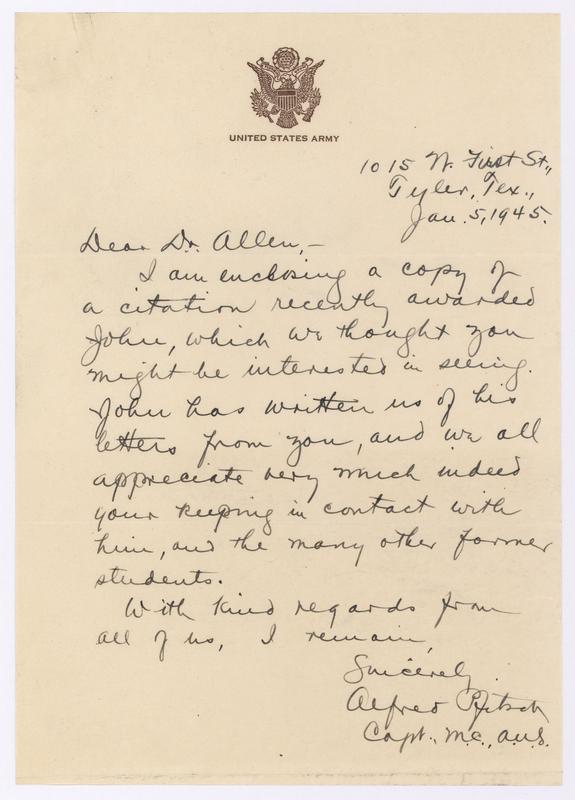 UNITED STATES ARMY
1015 W. First St.,
Tyler, Tex.,
Jan. 5, 1945.
Dear Dr. Allen,—
I am enclosing a copy of
a citation recently awarded
John, which we thought you
might be interested in seeing.
John has written us of his
letters from you, and we all
appreciate very much indeed
your keeping in contact with
him, and the many other former
students.
With kind regards from
all of us, I remain,
Sincerely,
Alfred
Capt., M.C., A.U.S.